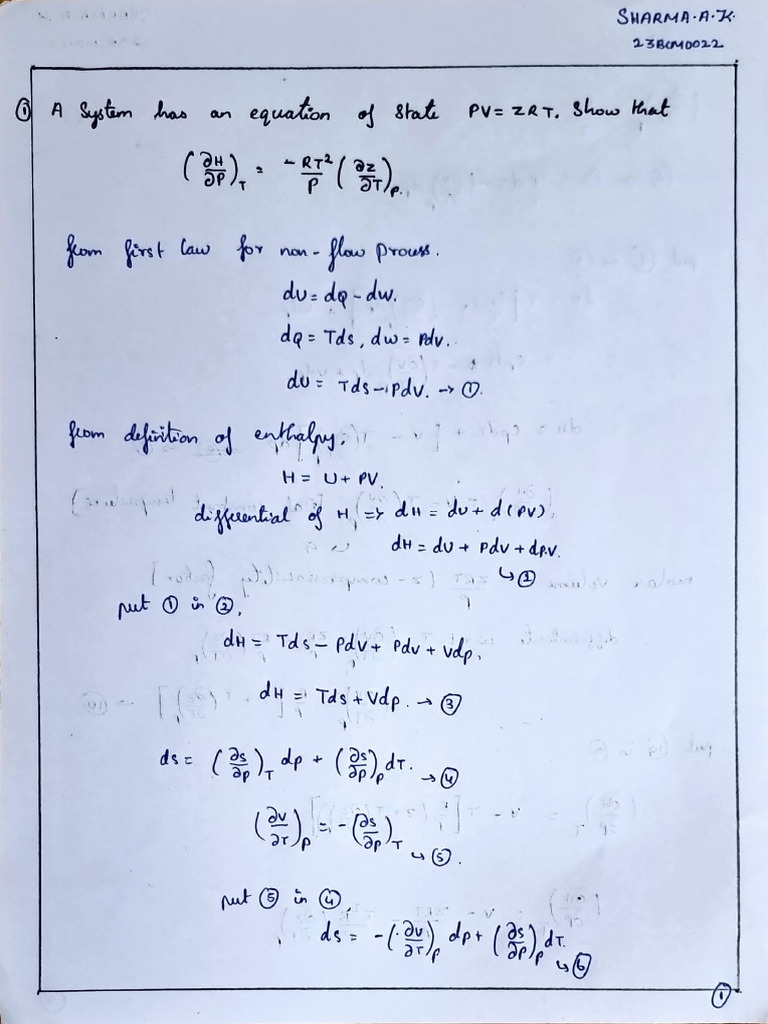 SHARMA.A.K.
23BCM0022
① A System has an equation of state PV = ZRT. Show that
(∂H/∂P)_T = -RT²/P (∂Z/∂T)_P.
from first law for non-flow process.
dU = dQ - dW.
dQ = Tds, dW = Pdv.
dU = Tds - Pdv. → ①.
from definition of enthalpy,
H = U + PV.
differential of H, => dH = dU + d(PV)
dH = dU + Pdv + dp.v.
↳ ②
put ① in ②,
dH = Tds - Pdv + Pdv + Vdp.
dH = Tds + Vdp. → ③
ds = (∂s/∂p)_T dp + (∂s/∂p)_P dT. → ④
(∂v/∂T)_P = -(∂s/∂p)_T ↳ ⑤.
put ⑤ in ④,
ds = -(∂v/∂T)_P dp + (∂s/∂p)_P dT. ↳ ⑥
①